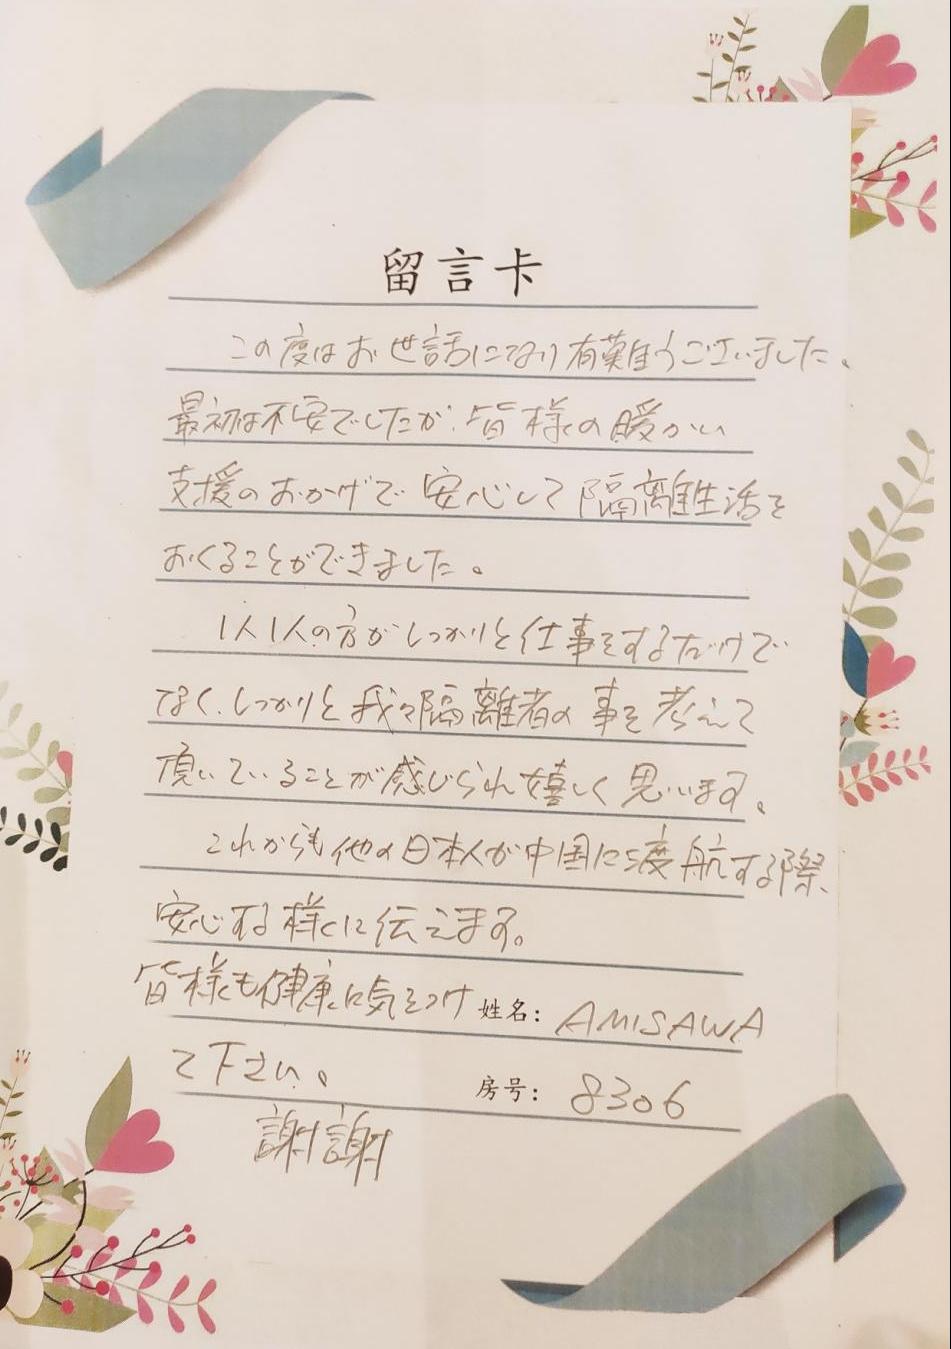 留言卡
この度はお世話になり有難うございました。
最初は不安でしたが、皆様の暖かい
支援のおかげで安心して隔離生活を
おくることができました。
1人1人の方がしっかりと仕事をするだけで
なく、しっかりと我々隔離者の事を考えて
頂いていることが感じられ嬉しく思います。
これからも他の日本人が中国に渡航する際、
安心する様に伝えます。
皆様も健康に気をつけ
て下さい。
謝謝
姓名: AMISAWA
房号: 8306